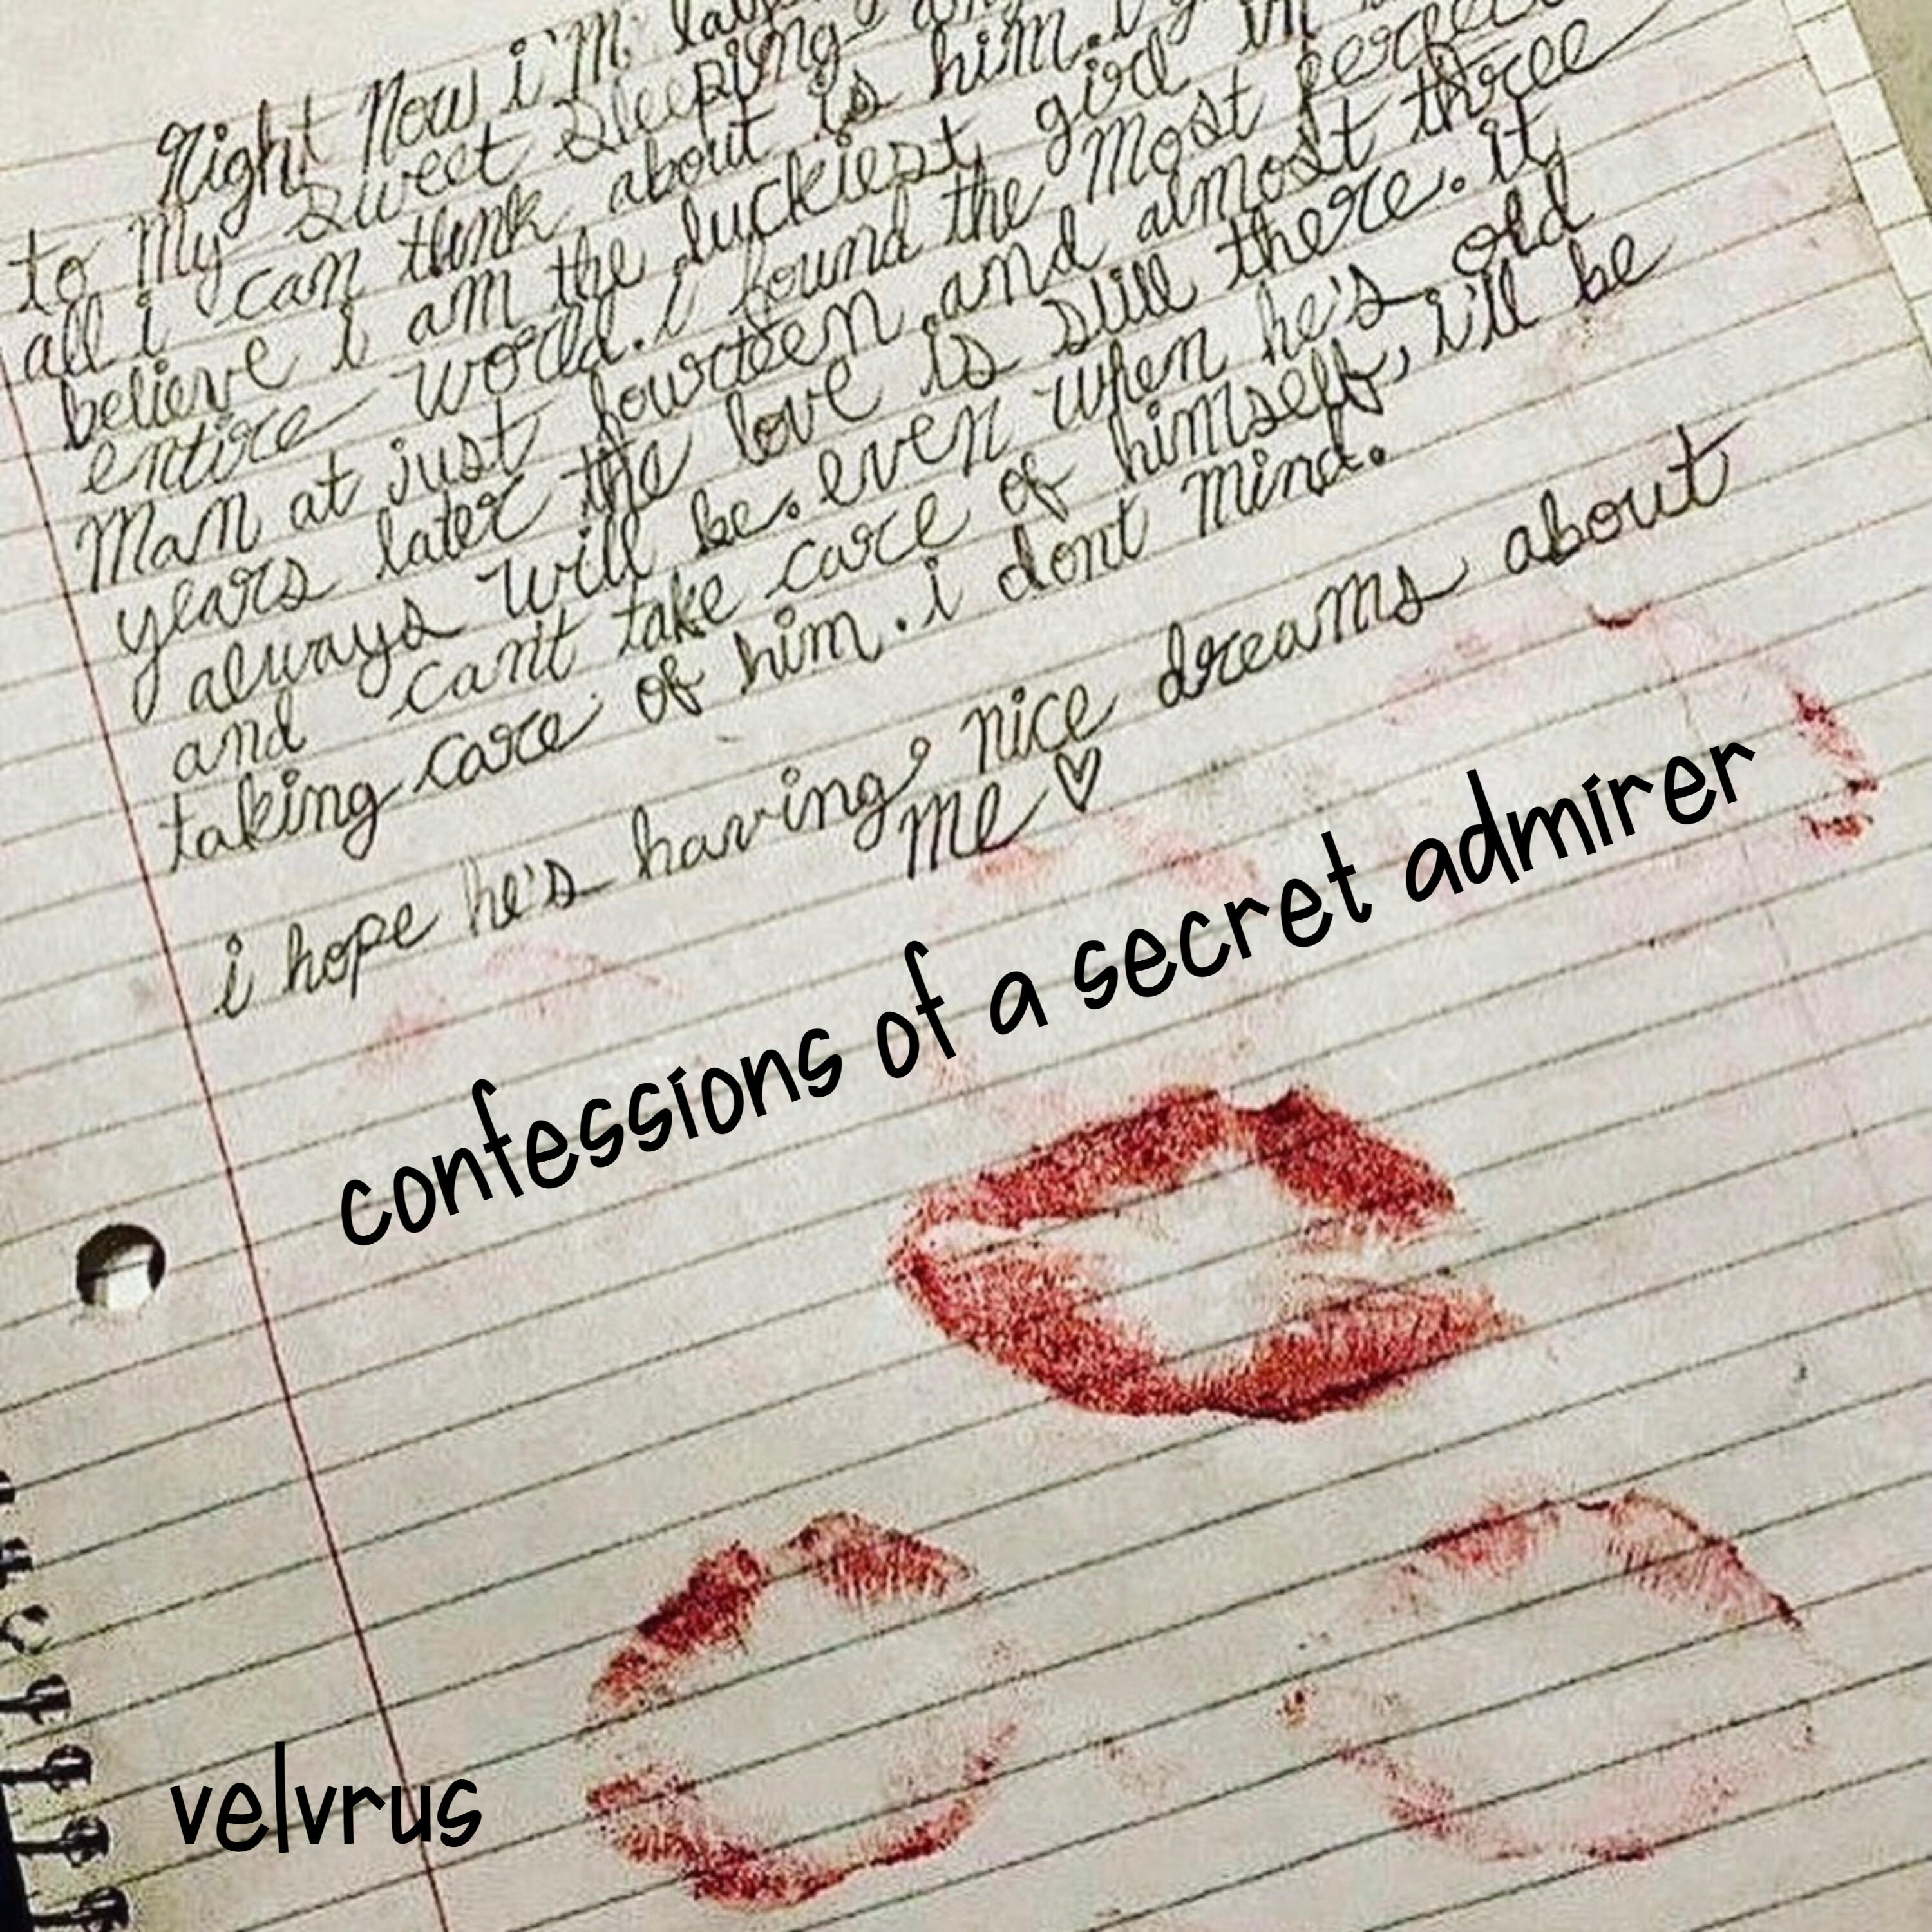 Right Now i'm
to my sweet sleeping
all i can think about is him. i
believe i am the luckiest girl in
entire world. i found the most perfect
man at just fourteen and almost three
years later the love is still there. it
always will be. even when he's old
and can't take care of himself, i'll be
taking care of him. i dont mind.
i hope he's having nice dreams about
me ♡
confessions of a secret admirer
velvrus